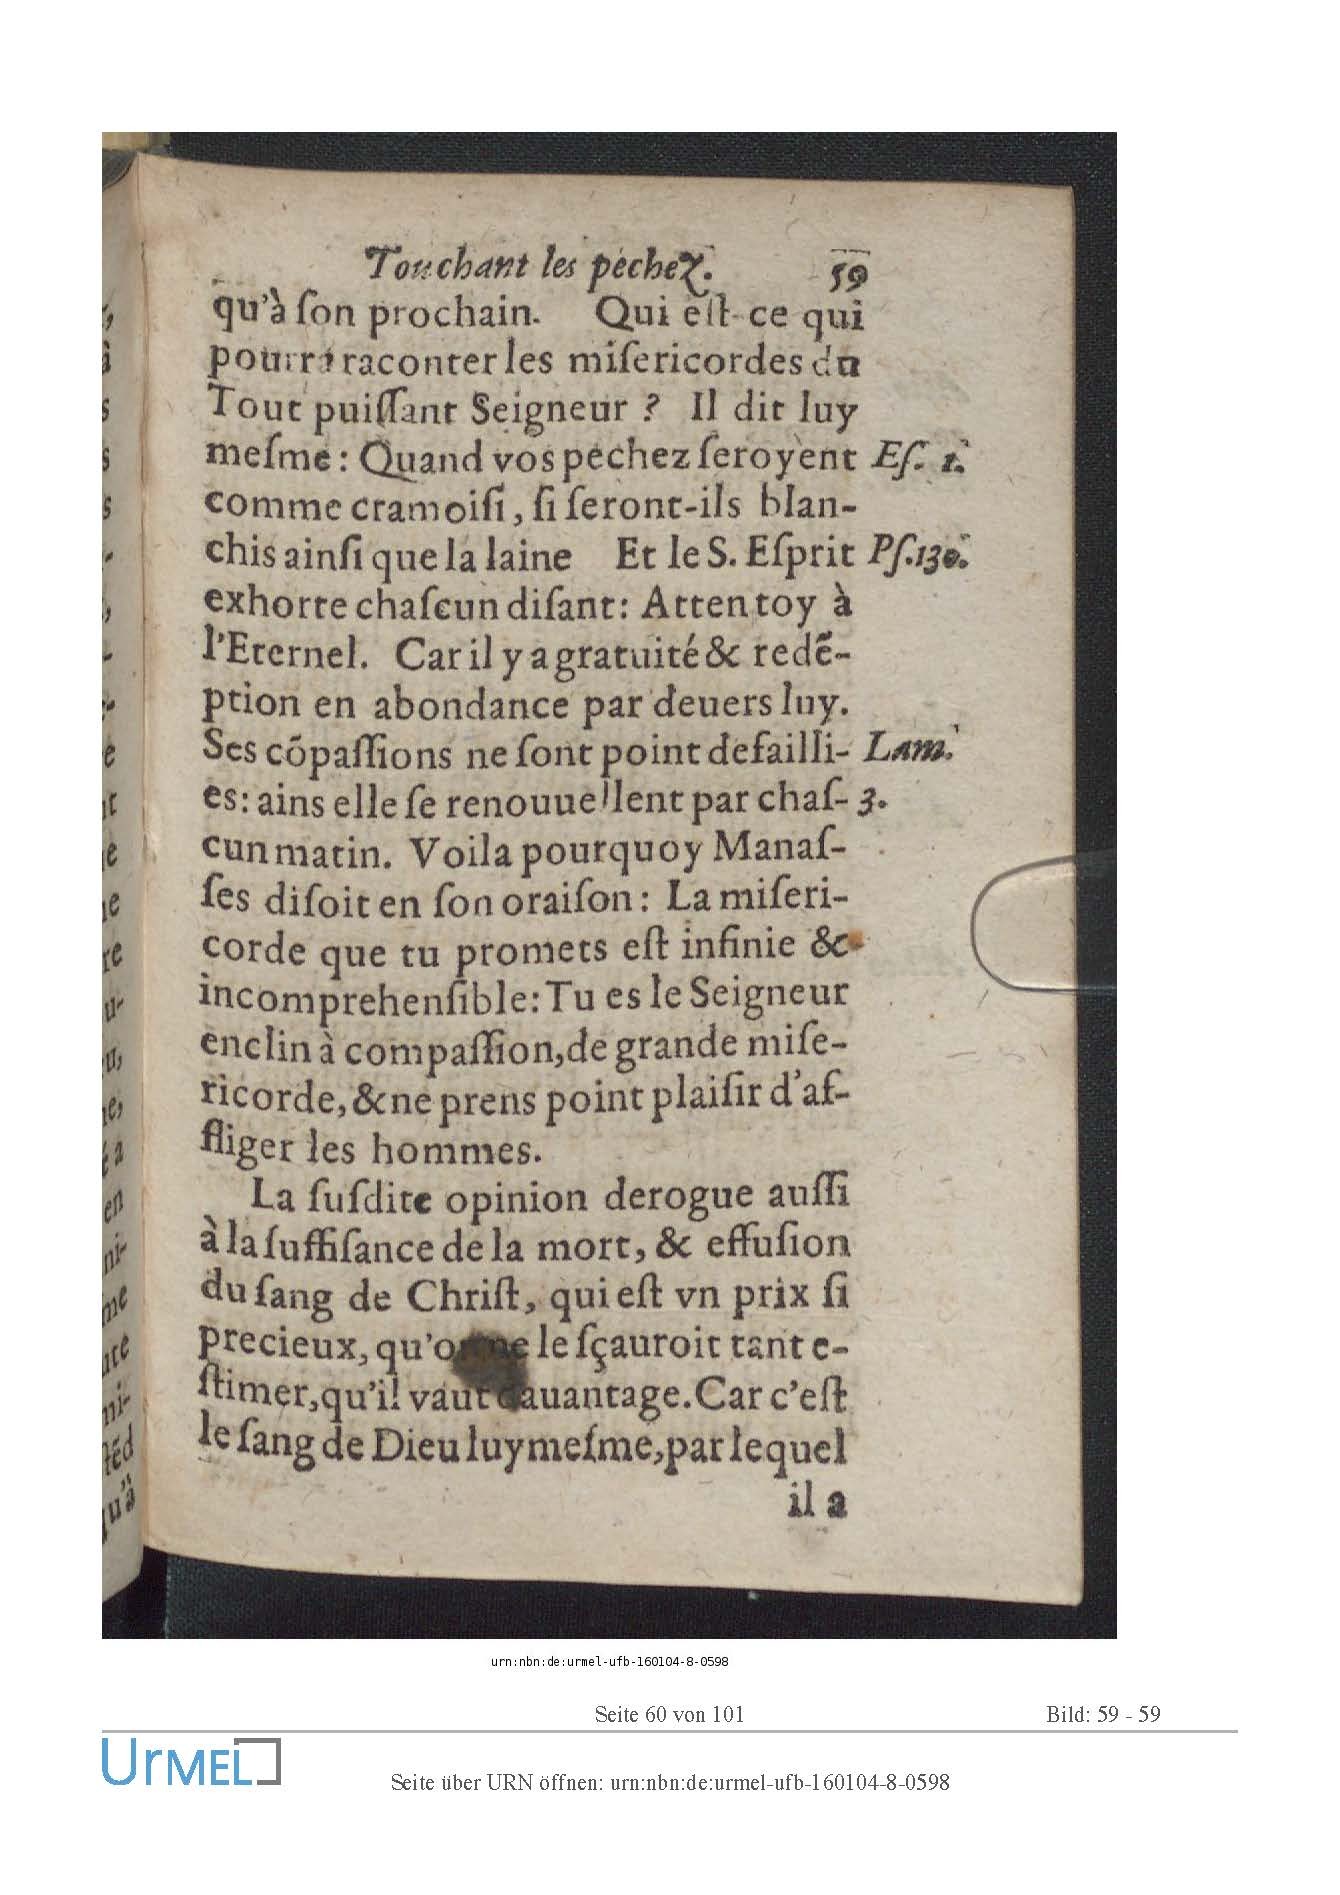 Touchant les pechez. 59
qu'à ſon prochain. Qui eſt-ce qui
pourra raconter les miſericordes du
Tout puiſſant Seigneur ? Il dit luy
meſme : Quand vos pechez ſeroyent Eſ. 1.
comme cramoiſi, ſi ſeront-ils blan-
chis ainſi que la laine Et le S. Eſprit Pſ.130.
exhorte chaſcun diſant : Atten toy à
l'Eternel. Car il y a gratuité & redẽ-
ption en abondance par deuers luy.
Ses cõpaſſions ne ſont point defailli- Lam.
es : ains elle ſe renouuellent par chaſ- 3.
cun matin. Voila pourquoy Manaſ-
ſes diſoit en ſon oraiſon : La miſeri-
corde que tu promets eſt infinie &
incomprehenſible : Tu es le Seigneur
enclin à compaſſion, de grande miſe-
ricorde, & ne prens point plaiſir d'af-
fliger les hommes.
La ſuſdite opinion derogue auſſi
à la ſuffiſance de la mort, & effuſion
du ſang de Chriſt, qui eſt vn prix ſi
precieux, qu'on ne le ſçauroit tant e-
ſtimer, qu'il vaut dauantage. Car c'eſt
le ſang de Dieu luy meſme, par lequel
il a
urn:nbn:de:urmel-ufb-160104-8-0598
Seite 60 von 101 Bild: 59 - 59
UrMEL
Seite über URN öffnen: urn:nbn:de:urmel-ufb-160104-8-0598